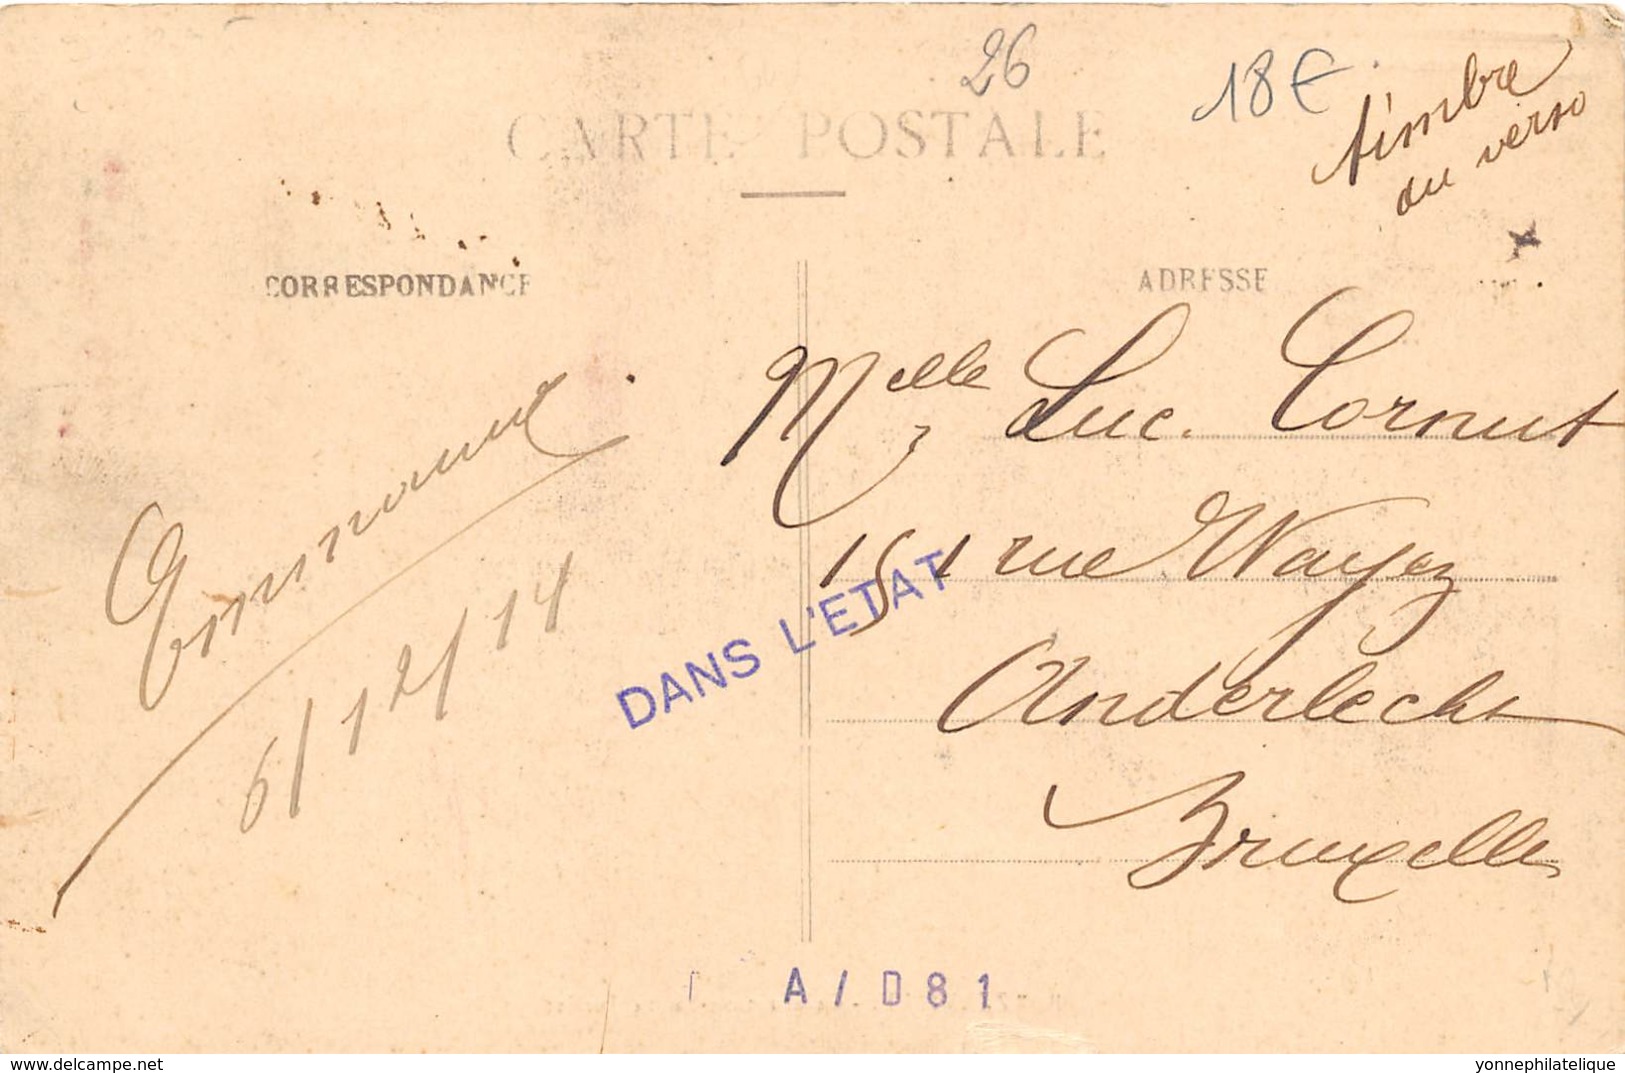 26
18€
timbre
au verso
CARTE POSTALE
CORRESPONDANCE
ADRESSE
Melle Luc. Cornut
151 rue Wayez
Anderlecht
Bruxelles
6/12/14
DANS L'ETAT
A/D81
delcampe.net
yonnephilatelique